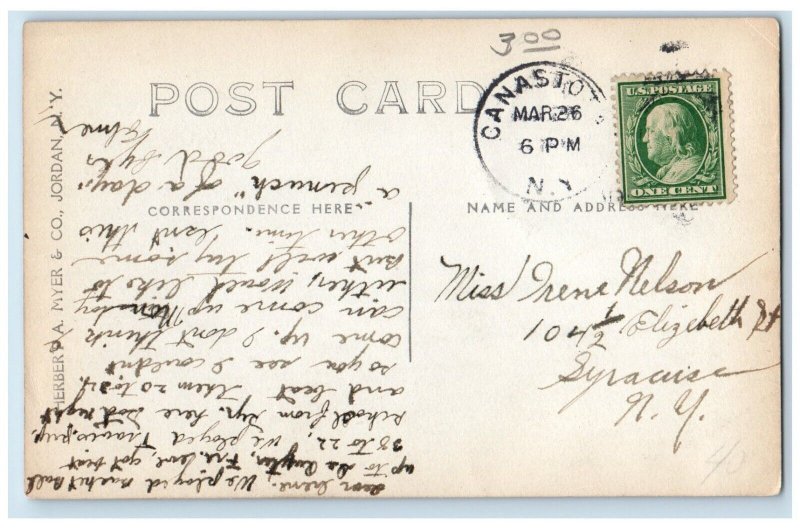 3 00
POST CARD
CANASTOTA
MAR 26
6 PM
N.Y.
U.S. POSTAGE
ONE CENT
CORRESPONDENCE HERE
NAME AND ADDRESS HERE
HERBERT A. MYER & CO., JORDAN, N.Y.
Miss Irene Nelson
104 1/2 Elizebeth St
Syracuse
N.Y.
Dear Irene; We played basket ball
up to Fri. eve, got beat
38 to 22, We played
school from Syr. here Sat night
and beat them 20 to 24.
so you see I couldn't
come up. I don't think
can come up Monday
either, would like to
but will try some
other time. Isn't this
a "peach" of a day.
good bye
Elmer